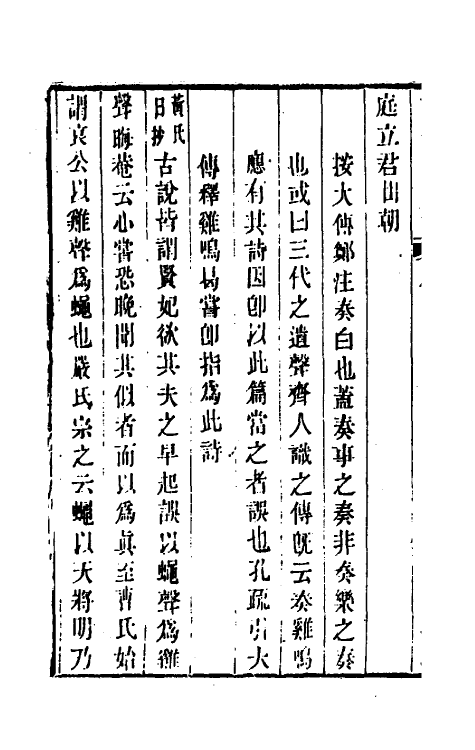 庭立君出朝
按大傳鄭注奏白也蓋奏事之奏非奏樂之奏
也或曰三代之遺聲齊人識之傳旣云奏雞鳴
應有其詩因卽以此篇當之者誤也孔疏引大
傳釋雞鳴曷嘗卽指爲此詩
黃氏日抄古說皆謂賢妃欲其夫之早起誤以蠅聲爲雞
聲晦菴云心嘗恐晚聞其似者而以爲眞至曹氏始
謂哀公以雞聲爲蠅也嚴氏宗之云蠅以天將明乃